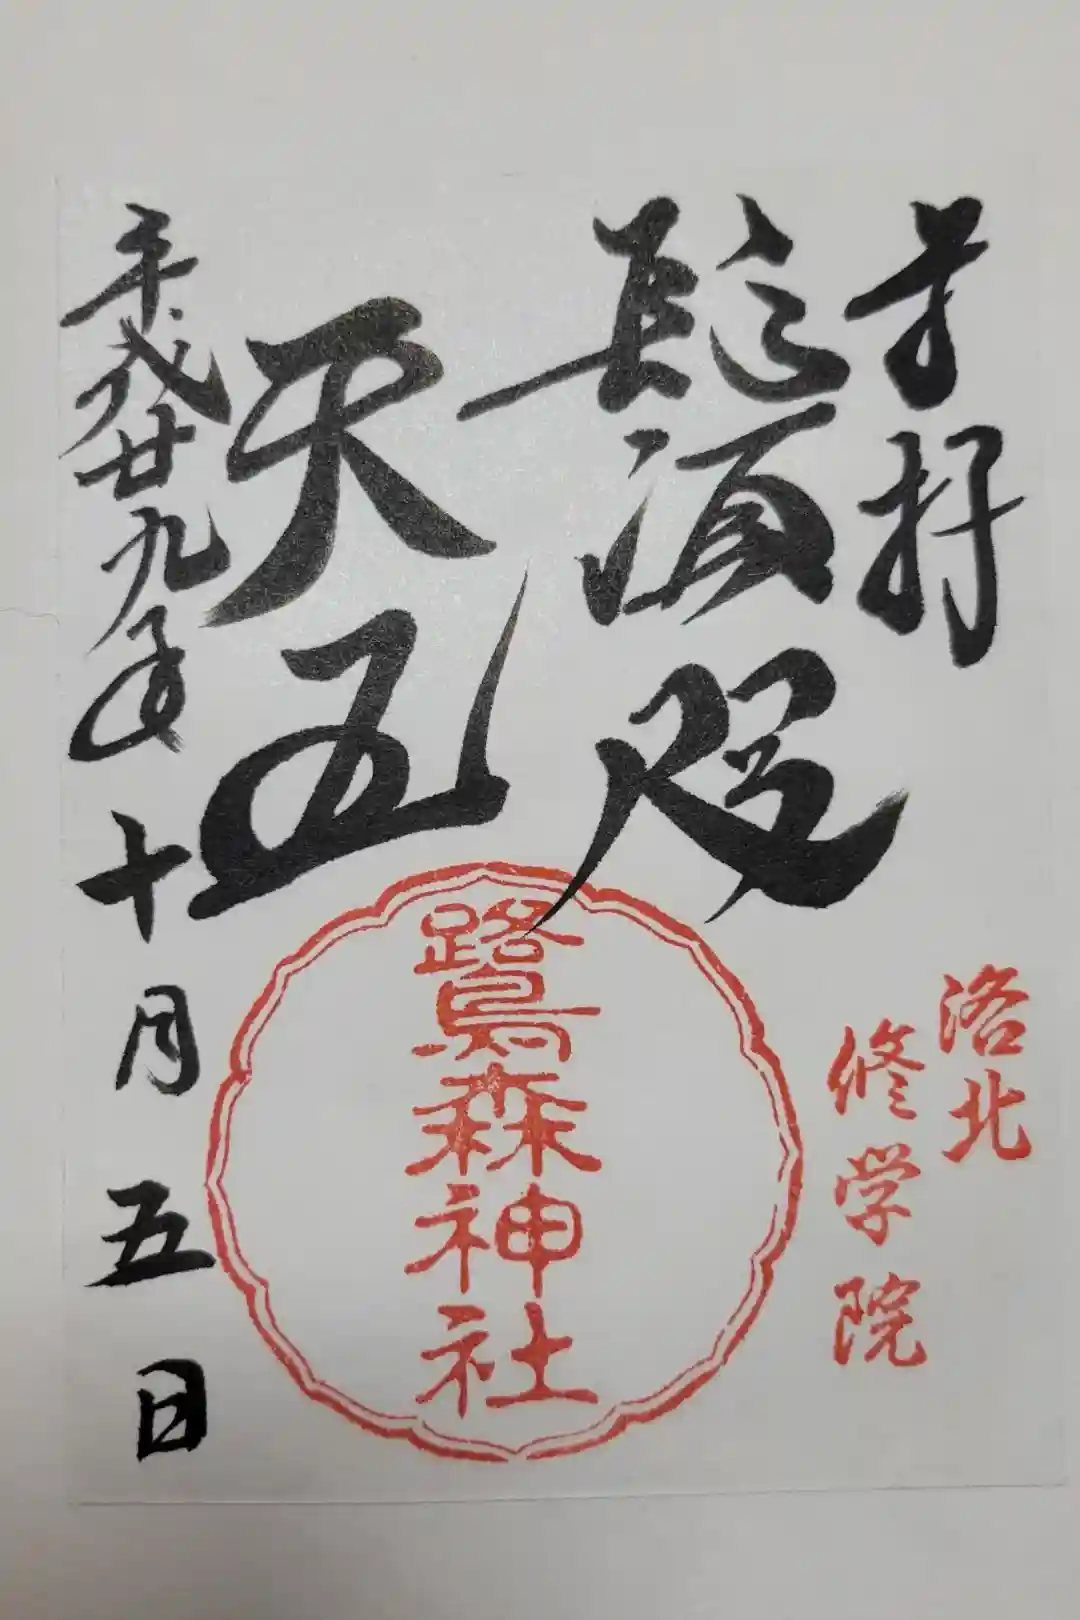 奉拝
鬚咫
天王
平成廿九年十月五日
洛北
修学院
鷺森神社